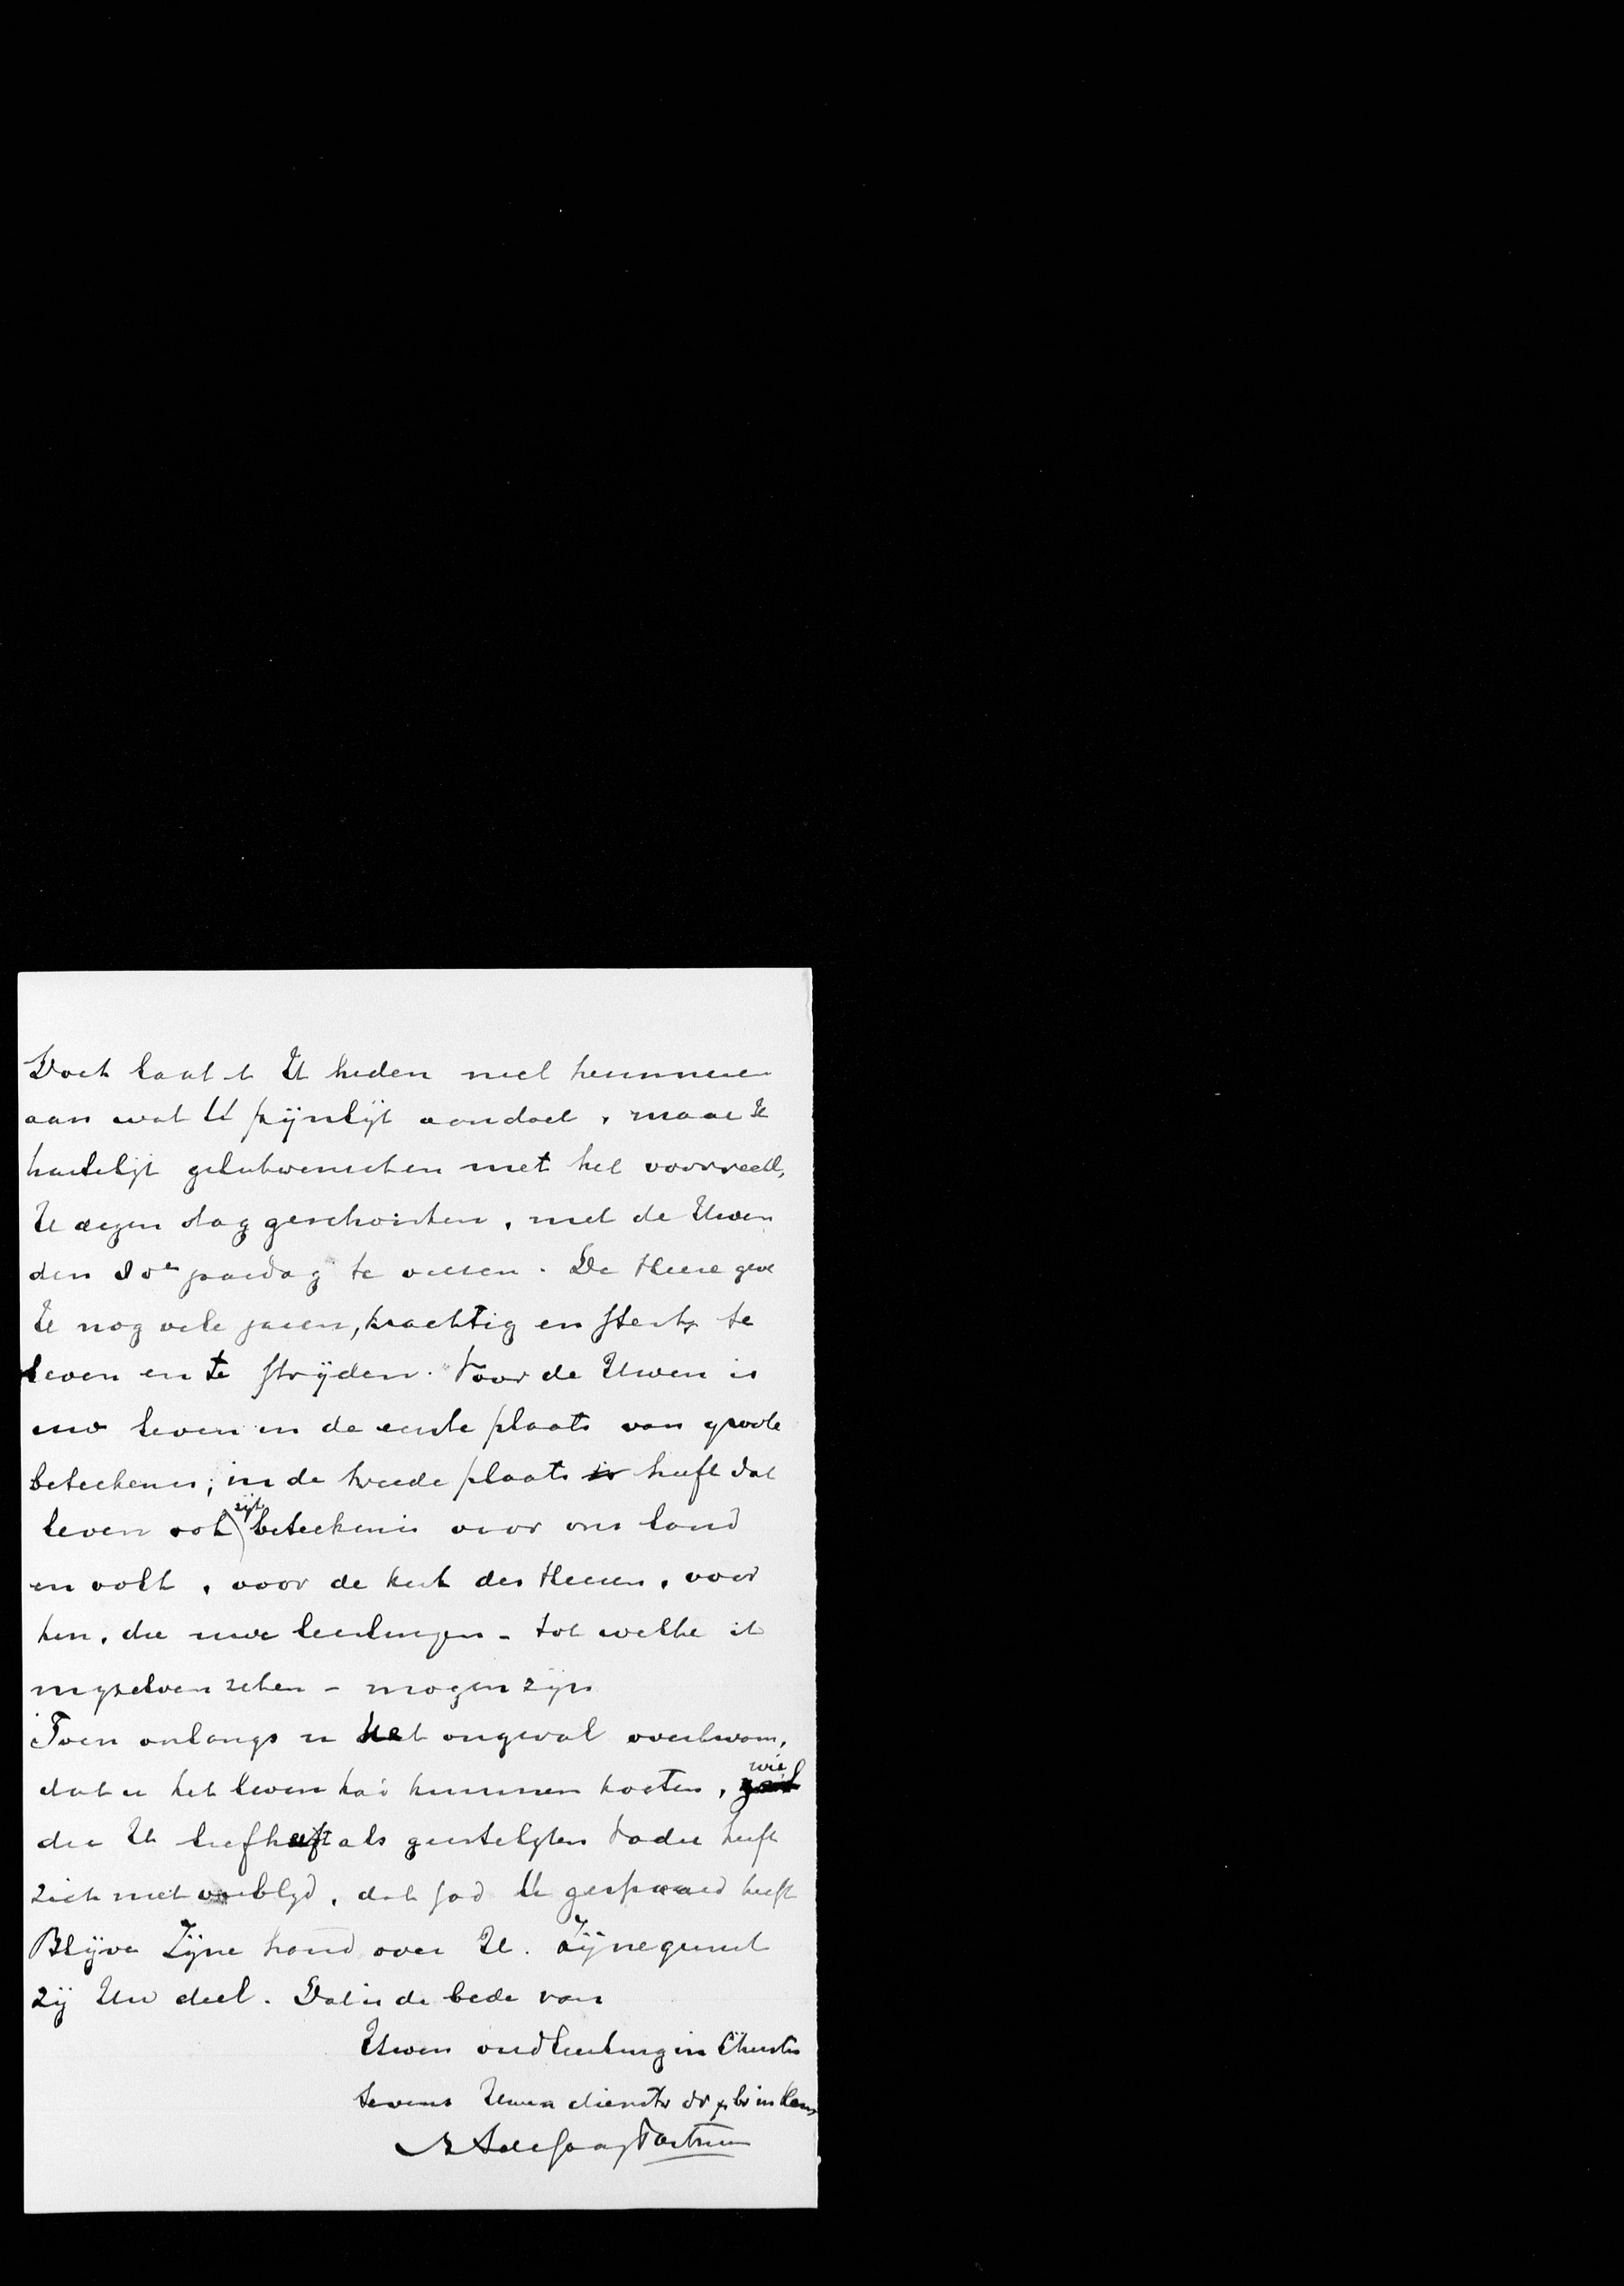 Doch laat ik U heden niet herinneren
aan wat U pijnlijk aandoet, maar U
hartelijk gelukwenschen met het voorrecht,
U dezen dag geschonken, met de Uwen
den 80en jaardag te vieren. De Heere geve
U nog vele jaren, krachtig en sterk, te
leven en te strijden. Voor de Uwen is
uw leven in de eerste plaats van groote
beteekenis; in de tweede plaats is heeft dat
leven ook zijn beteekenis voor ons land
en volk, voor de kerk des Heeren, voor
hen, die uwe leerlingen - tot welke ik
mijzelven reken - mogen zijn
Toen onlangs u het ongeval overkwam,
dat u het leven had kunnen kosten, wie
die U liefheeft als geestelijken vader heeft
zich niet verblijd, dat God U gespaard heeft
Blijve Zijne hand over U. Zijne gunst
zij Uw deel. Dat is de bede van
Uwen oud leerling in Christus
tevens Uwen dienstw dr & br in den